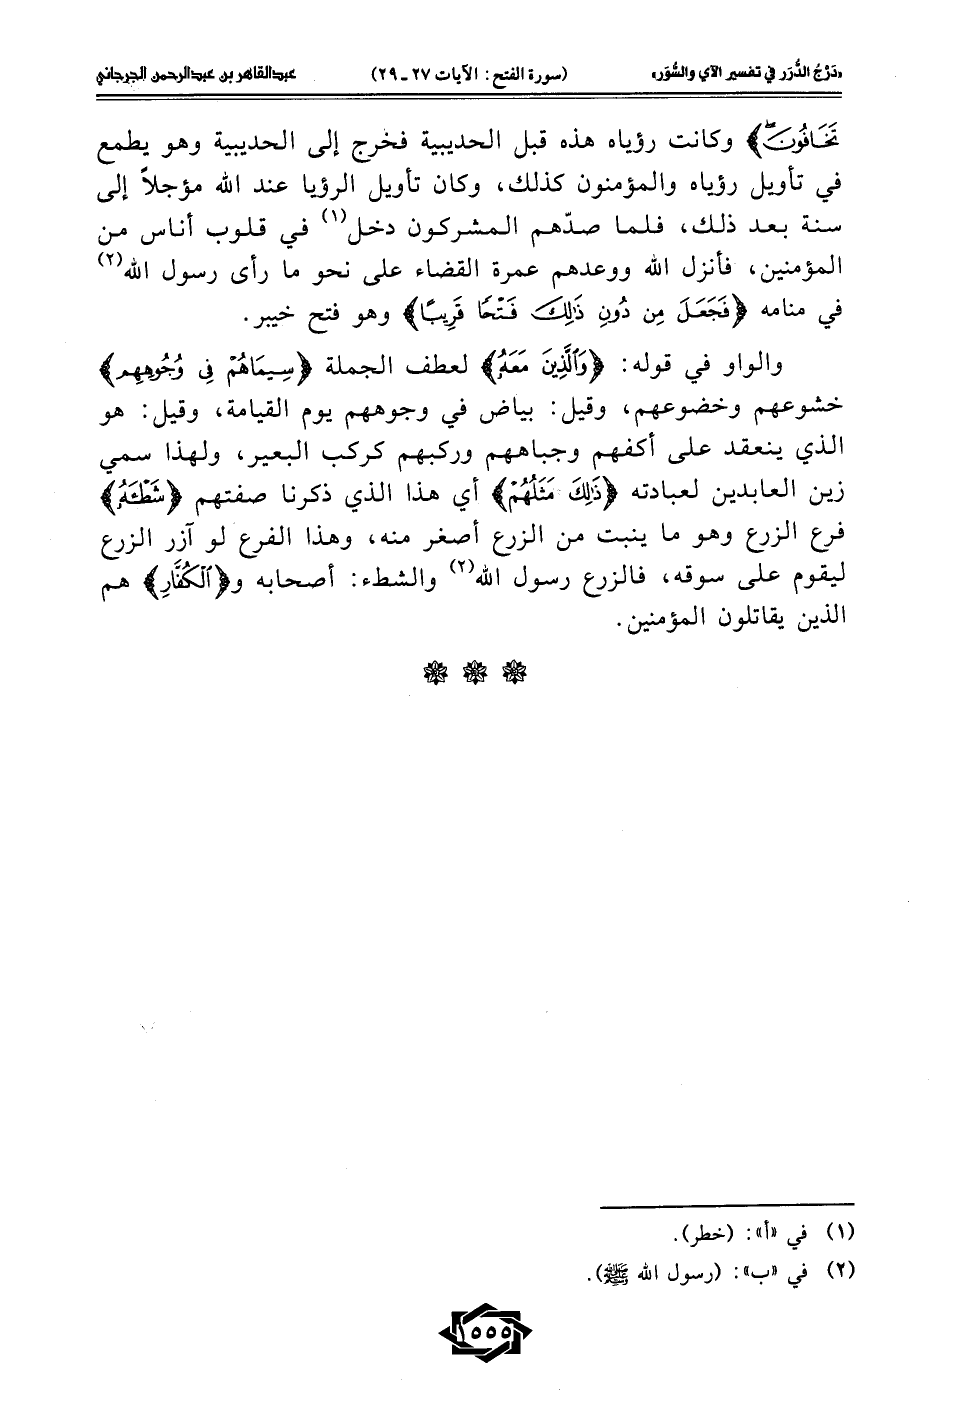 «دَرْجُ الدُّرَر في تفسير الآي والسُّوَر» (سورة الفتح: الآيات ٢٧ ـ ٢٩) عبدالقاهر بن عبدالرحمن الجرجاني
تَخَافُونَ﴾ وكانت رؤياه هذه قبل الحديبية فخرج إلى الحديبية وهو يطمع
في تأويل رؤياه والمؤمنون كذلك، وكان تأويل الرؤيا عند الله مؤجلاً إلى
سنة بعد ذلك، فلما صدّهم المشركون دخل(١) في قلوب أناس من
المؤمنين، فأنزل الله ووعدهم عمرة القضاء على نحو ما رأى رسول الله(٢)
في منامه ﴿فَجَعَلَ مِن دُونِ ذَلِكَ فَتْحًا قَرِيبًا﴾ وهو فتح خيبر.
والواو في قوله: ﴿وَٱلَّذِينَ مَعَهُ﴾ لعطف الجملة ﴿سِيمَاهُمْ فِى وُجُوهِهِم﴾
خشوعهم وخضوعهم، وقيل: بياض في وجوههم يوم القيامة، وقيل: هو
الذي ينعقد على أكفهم وجباههم وركبهم كركب البعير، ولهذا سمي
زين العابدين لعبادته ﴿ذَلِكَ مَثَلُهُمْ﴾ أي هذا الذي ذكرنا صفتهم ﴿شَطْئَهُ﴾
فرع الزرع وهو ما ينبت من الزرع أصغر منه، وهذا الفرع لو آزر الزرع
ليقوم على سوقه، فالزرع رسول الله(٢) والشطء: أصحابه و﴿ٱلْكُفَّارِ﴾ هم
الذين يقاتلون المؤمنين.
(١) في «أ»: (خطر).
(٢) في «ب»: (رسول الله ﷺ).
١٥٥٥